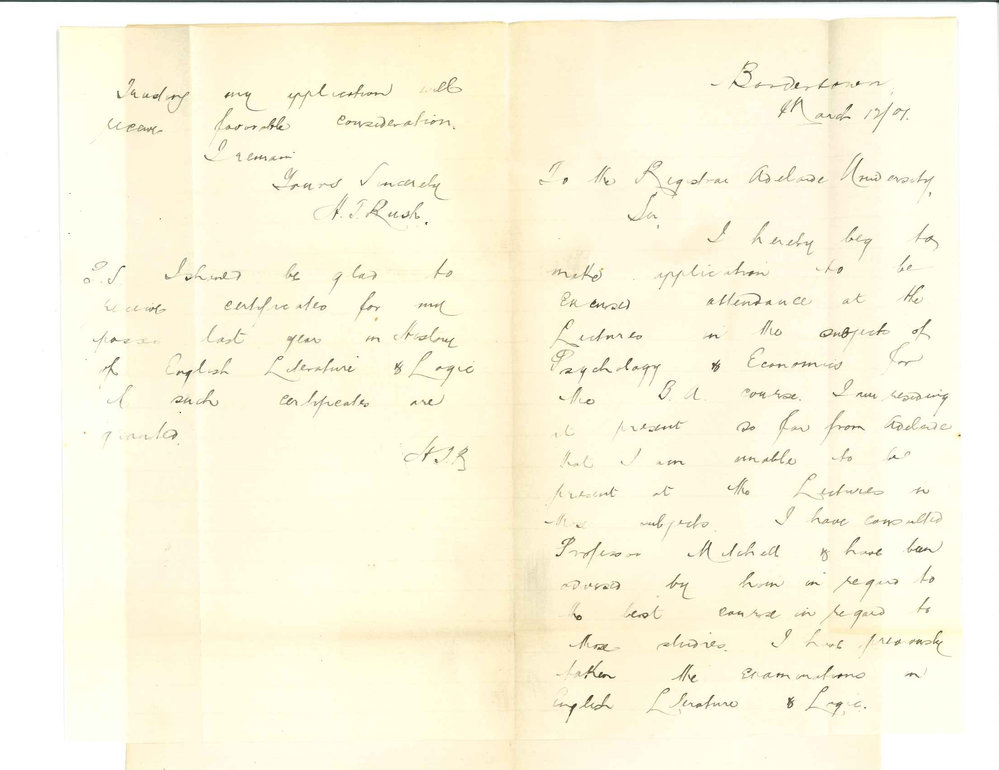 Bordertown,
March 12/01.
To the Registrar Adelaide University,
Sir,
I hereby beg to
make application to be
excused attendance at the
Lectures in the subjects of
Psychology & Economics for
the B.A. course. I am residing
at present so far from Adelaide
that I am unable to be
present at the Lectures in
these subjects. I have consulted
Professor Mitchell & have been
advised by him in regard to
the best course in regard to
those studies. I have previously
taken the examinations in
English Literature & Logic.
Trusting my application will
receive favorable consideration.
I remain
Yours Sincerely
H.T. Rush.
P.S. I should be glad to
receive certificates for my
passes last year in History
of English Literature & Logic
if such certificates are
granted.
H.T.R